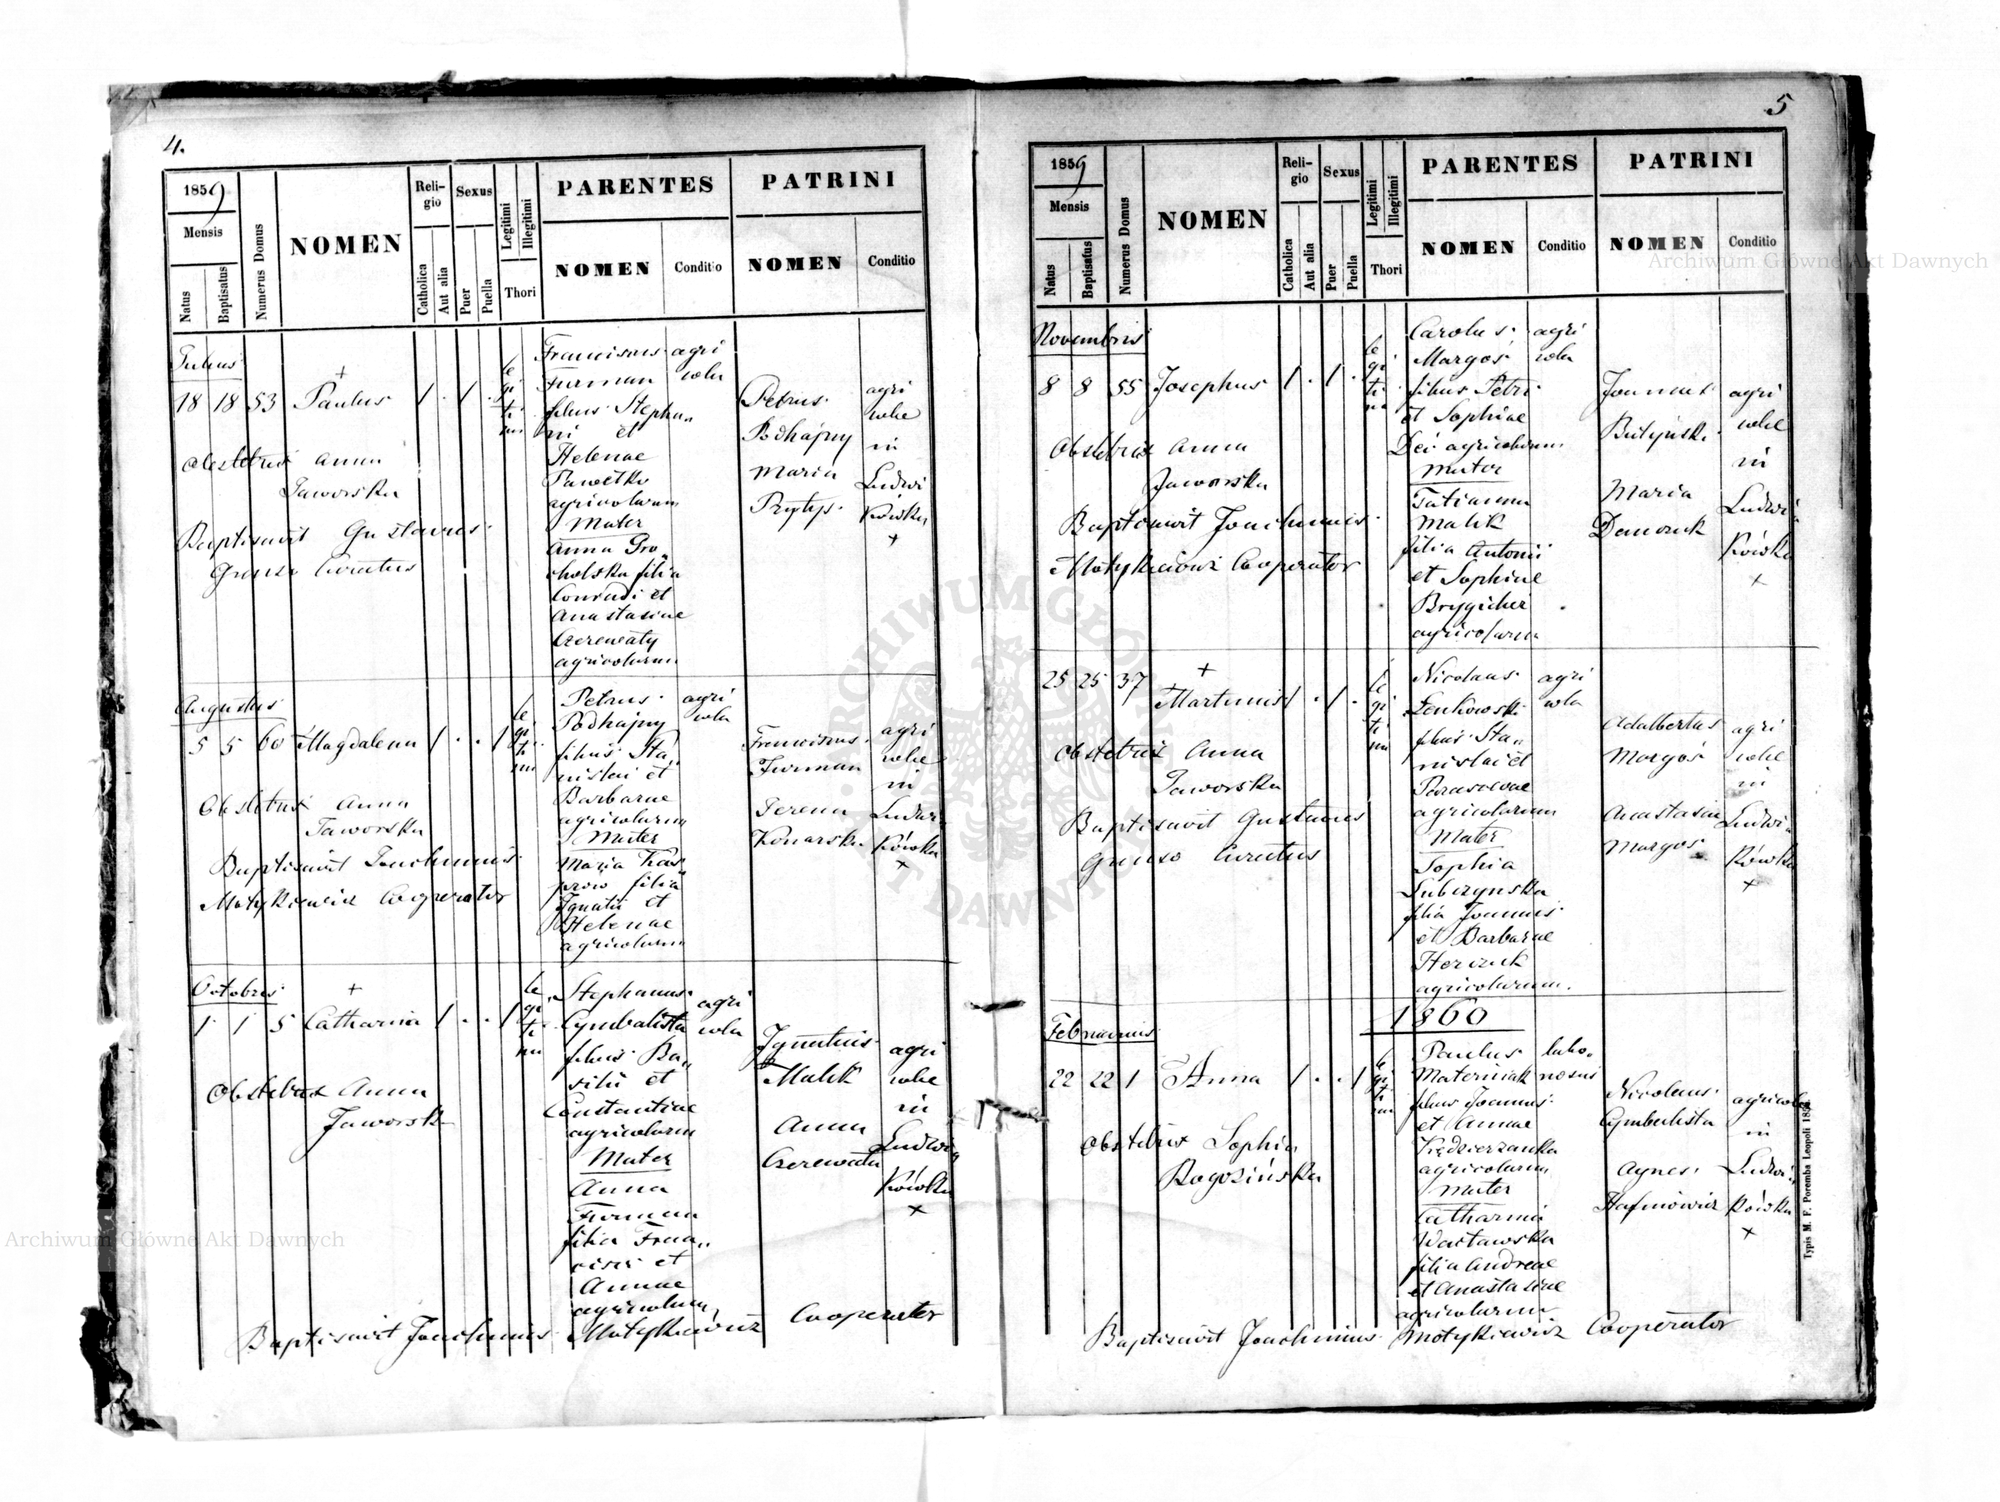 4.
1859
Mensis
Natus
Baptisatus
Numerus Domus
NOMEN
Religio
Catholica
Aut alia
Sexus
Puer
Puella
Legitimi
Illegitimi
Thori
PARENTES
NOMEN
Conditio
PATRINI
NOMEN
Conditio
Julius
18 18 53 Paulus 1 . 1 .
legitimi
Obstetrix Anna
Jaworska
Baptisavit Gustavus
Curatus
Franciscus agri
Furman cola
filius Stepha„
ni et
Helenae
agricolarum
Mater
Anna Gro„
cholska filia
Conradi et
Anastasiae
Czerewaty
agricolarum
Petrus
Podhajny
Maria
Prytys
agri
colae
in
Ludwi
kówka
+
Augustus
5 5 60 Magdalena 1 . . 1
legitimi
Obstetrix Anna
Jaworska
Baptisavit Joachimus
Motykiewicz Cooperator
Petrus agri
Podhajny cola
filius Sta„
nislai et
Barbarae
agricolarum
Mater
Maria
filia
Ignatii et
Helenae
agricolarum
Franciscus
Furman
Terena
Konarska
agri
colae
in
Ludwi
kówka
+
Octobris
+
1 1 5 Catharina 1 . . 1
legitimi
Obstetrix Anna
Jaworska
Stephanus agri
Cymbalista cola
filius Ba„
silii et
Constantiae
agricolarum
Mater
Anna
Furman
filia Fran„
cisci et
Annae
agricolarum
Ignatius
Malik
Anna
Czerewata
agri
colae
in
Ludwi
kówka
+
Baptisavit Joachimus Motykiewicz Cooperator
5
1859
Mensis
Natus
Baptisatus
Numerus Domus
NOMEN
Religio
Catholica
Aut alia
Sexus
Puer
Puella
Legitimi
Illegitimi
Thori
PARENTES
NOMEN
Conditio
PATRINI
NOMEN
Conditio
Novembris
8 8 55 Josephus 1 . 1 .
legitimi
Obstetrix Anna
Jaworska
Baptisavit Joachimus
Motykiewicz Cooperator
Carolus agri
Margoś cola
filius Petri
et Sophiae
Dei agricolarum
Mater
Tatianna
Malik
filia Antonii
et Sophiae
agricolarum
Joannes
Maria
agri
colae
in
Ludwi„
kówka
+
25 25 37 Martinus 1 . 1 .
+
legitimi
Obstetrix Anna
Jaworska
Baptisavit Gustavus
Curatus
Nicolaus agri
Lenkowski cola
filius Sta„
nislai et
Parascevae
agricolarum
Mater
Sophia
Lubczynska
filia Joannis
et Barbarae
Herczuk
agricolarum.
Adalbertus
Margoś
Anastasia
Margoś
agri
colae
in
Ludwi
kówka
+
1860
Februarius
22 22 1 Anna 1 . . 1
legitimi
Obstetrix Sophia
Rogozińska
Paulus labo„
Materniak riosus
filius Joannis
et Annae
Kędzierzanka
agricolarum
Mater
Catharina
Wacławska
filia Andreae
et Anastasiae
agricolarum
Nicolaus
Cymbalista
Agnes
agricolae
in
Ludwi„
kówka
+
Baptisavit Joachimus Motykiewicz Cooperator
Typis M. F. Poremba Leopoli
ARCHIWUM GŁÓWNE AKT DAWNYCH
Archiwum Główne Akt Dawnych
Archiwum Główne Akt Dawnych